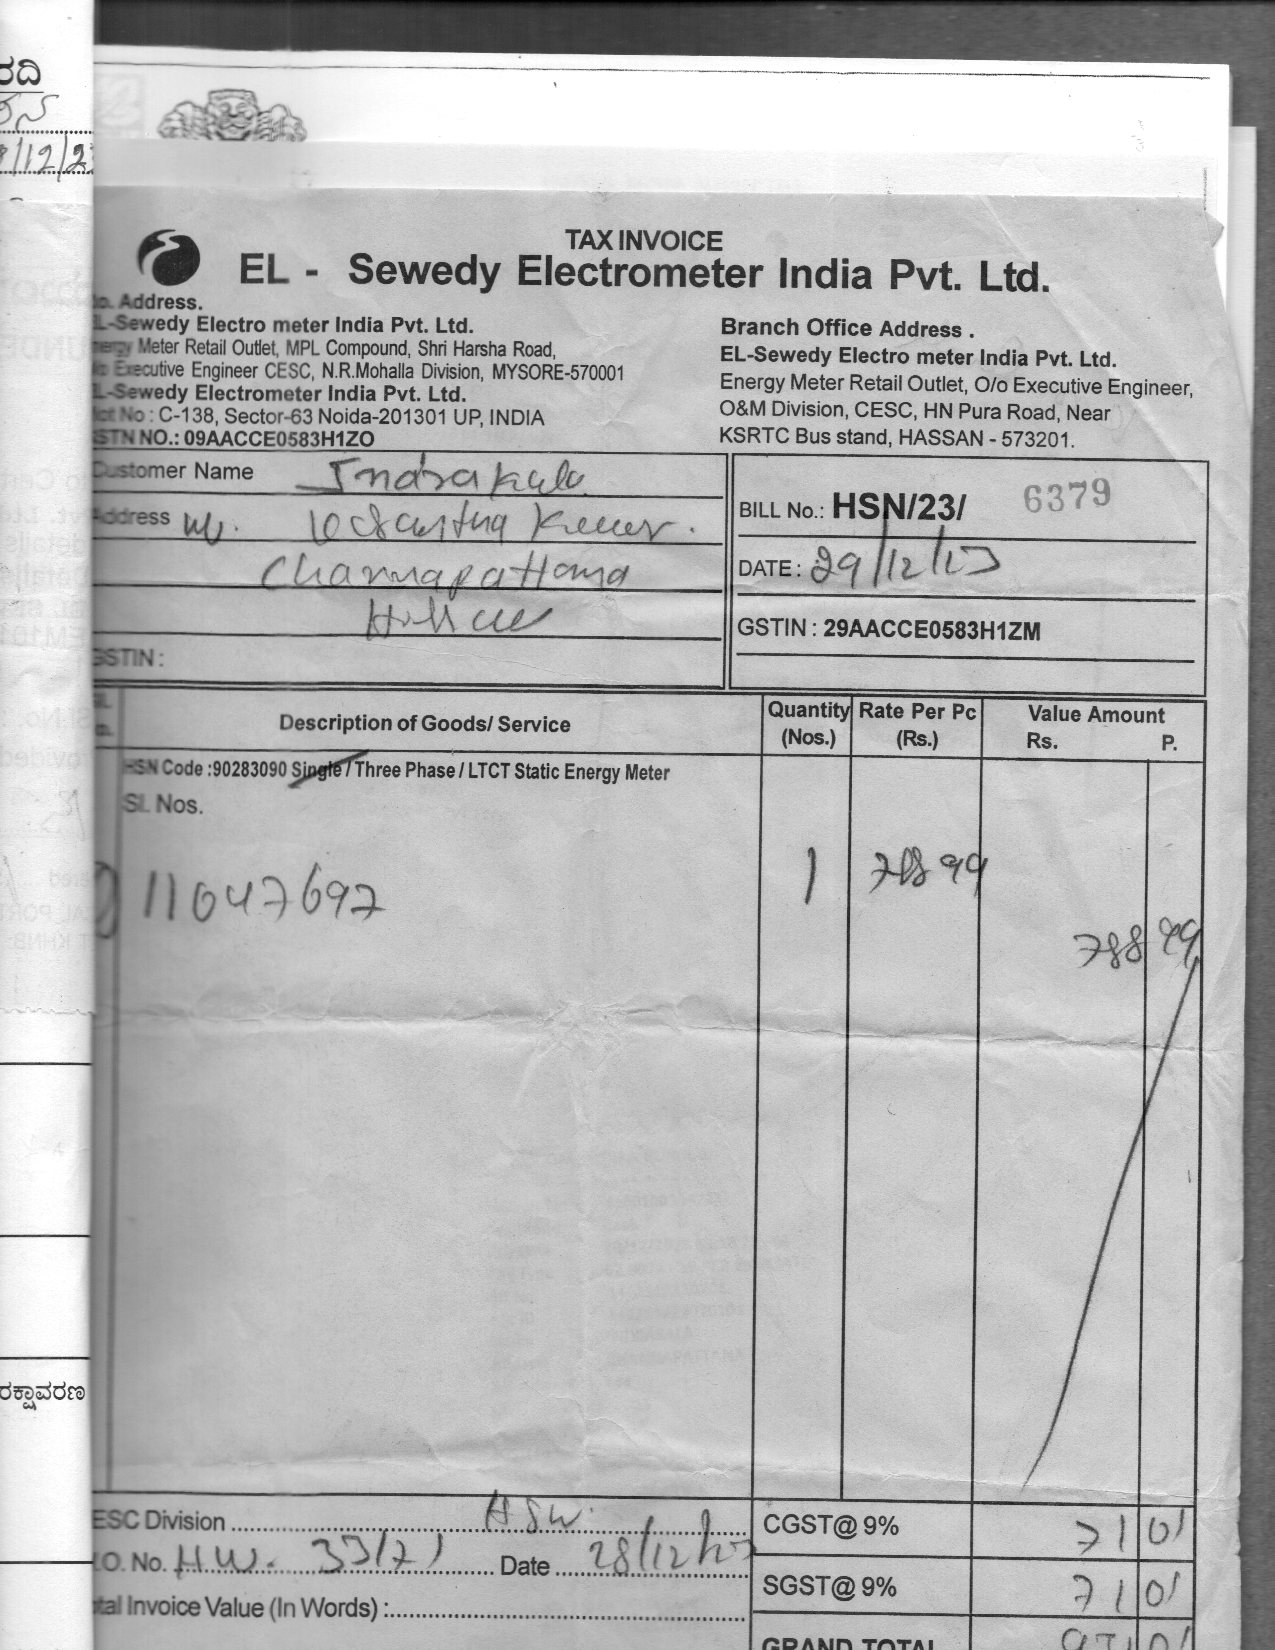 ರದಿ
/12/2
TAX INVOICE
EL - Sewedy Electrometer India Pvt. Ltd.
o. Address.
L-Sewedy Electro meter India Pvt. Ltd.
Meter Retail Outlet, MPL Compound, Shri Harsha Road,
Executive Engineer CESC, N.R.Mohalla Division, MYSORE-570001
L-Sewedy Electrometer India Pvt. Ltd.
No : C-138, Sector-63 Noida-201301 UP, INDIA
GSTN NO.: 09AACCE0583H1ZO
Branch Office Address .
EL-Sewedy Electro meter India Pvt. Ltd.
Energy Meter Retail Outlet, O/o Executive Engineer,
O&M Division, CESC, HN Pura Road, Near
KSRTC Bus stand, HASSAN - 573201.
Customer Name Indrakala
Address
Channapattana
GSTIN :
BILL No.: HSN/23/ 6379
DATE : 29/12/23
GSTIN : 29AACCE0583H1ZM
Description of Goods/ Service Quantity (Nos.) Rate Per Pc (Rs.) Value Amount Rs. P.
HSN Code :90283090 Single / Three Phase / LTCT Static Energy Meter
SL Nos.
11047697 1 788 99
788 99
ESC Division HSN.
.O. No. H.W. Date 28/12/23
tal Invoice Value (In Words) :
CGST@ 9% 71 01
SGST@ 9% 71 01
GRAND TOTAL 931 01
ರಕ್ಷಾವರಣ